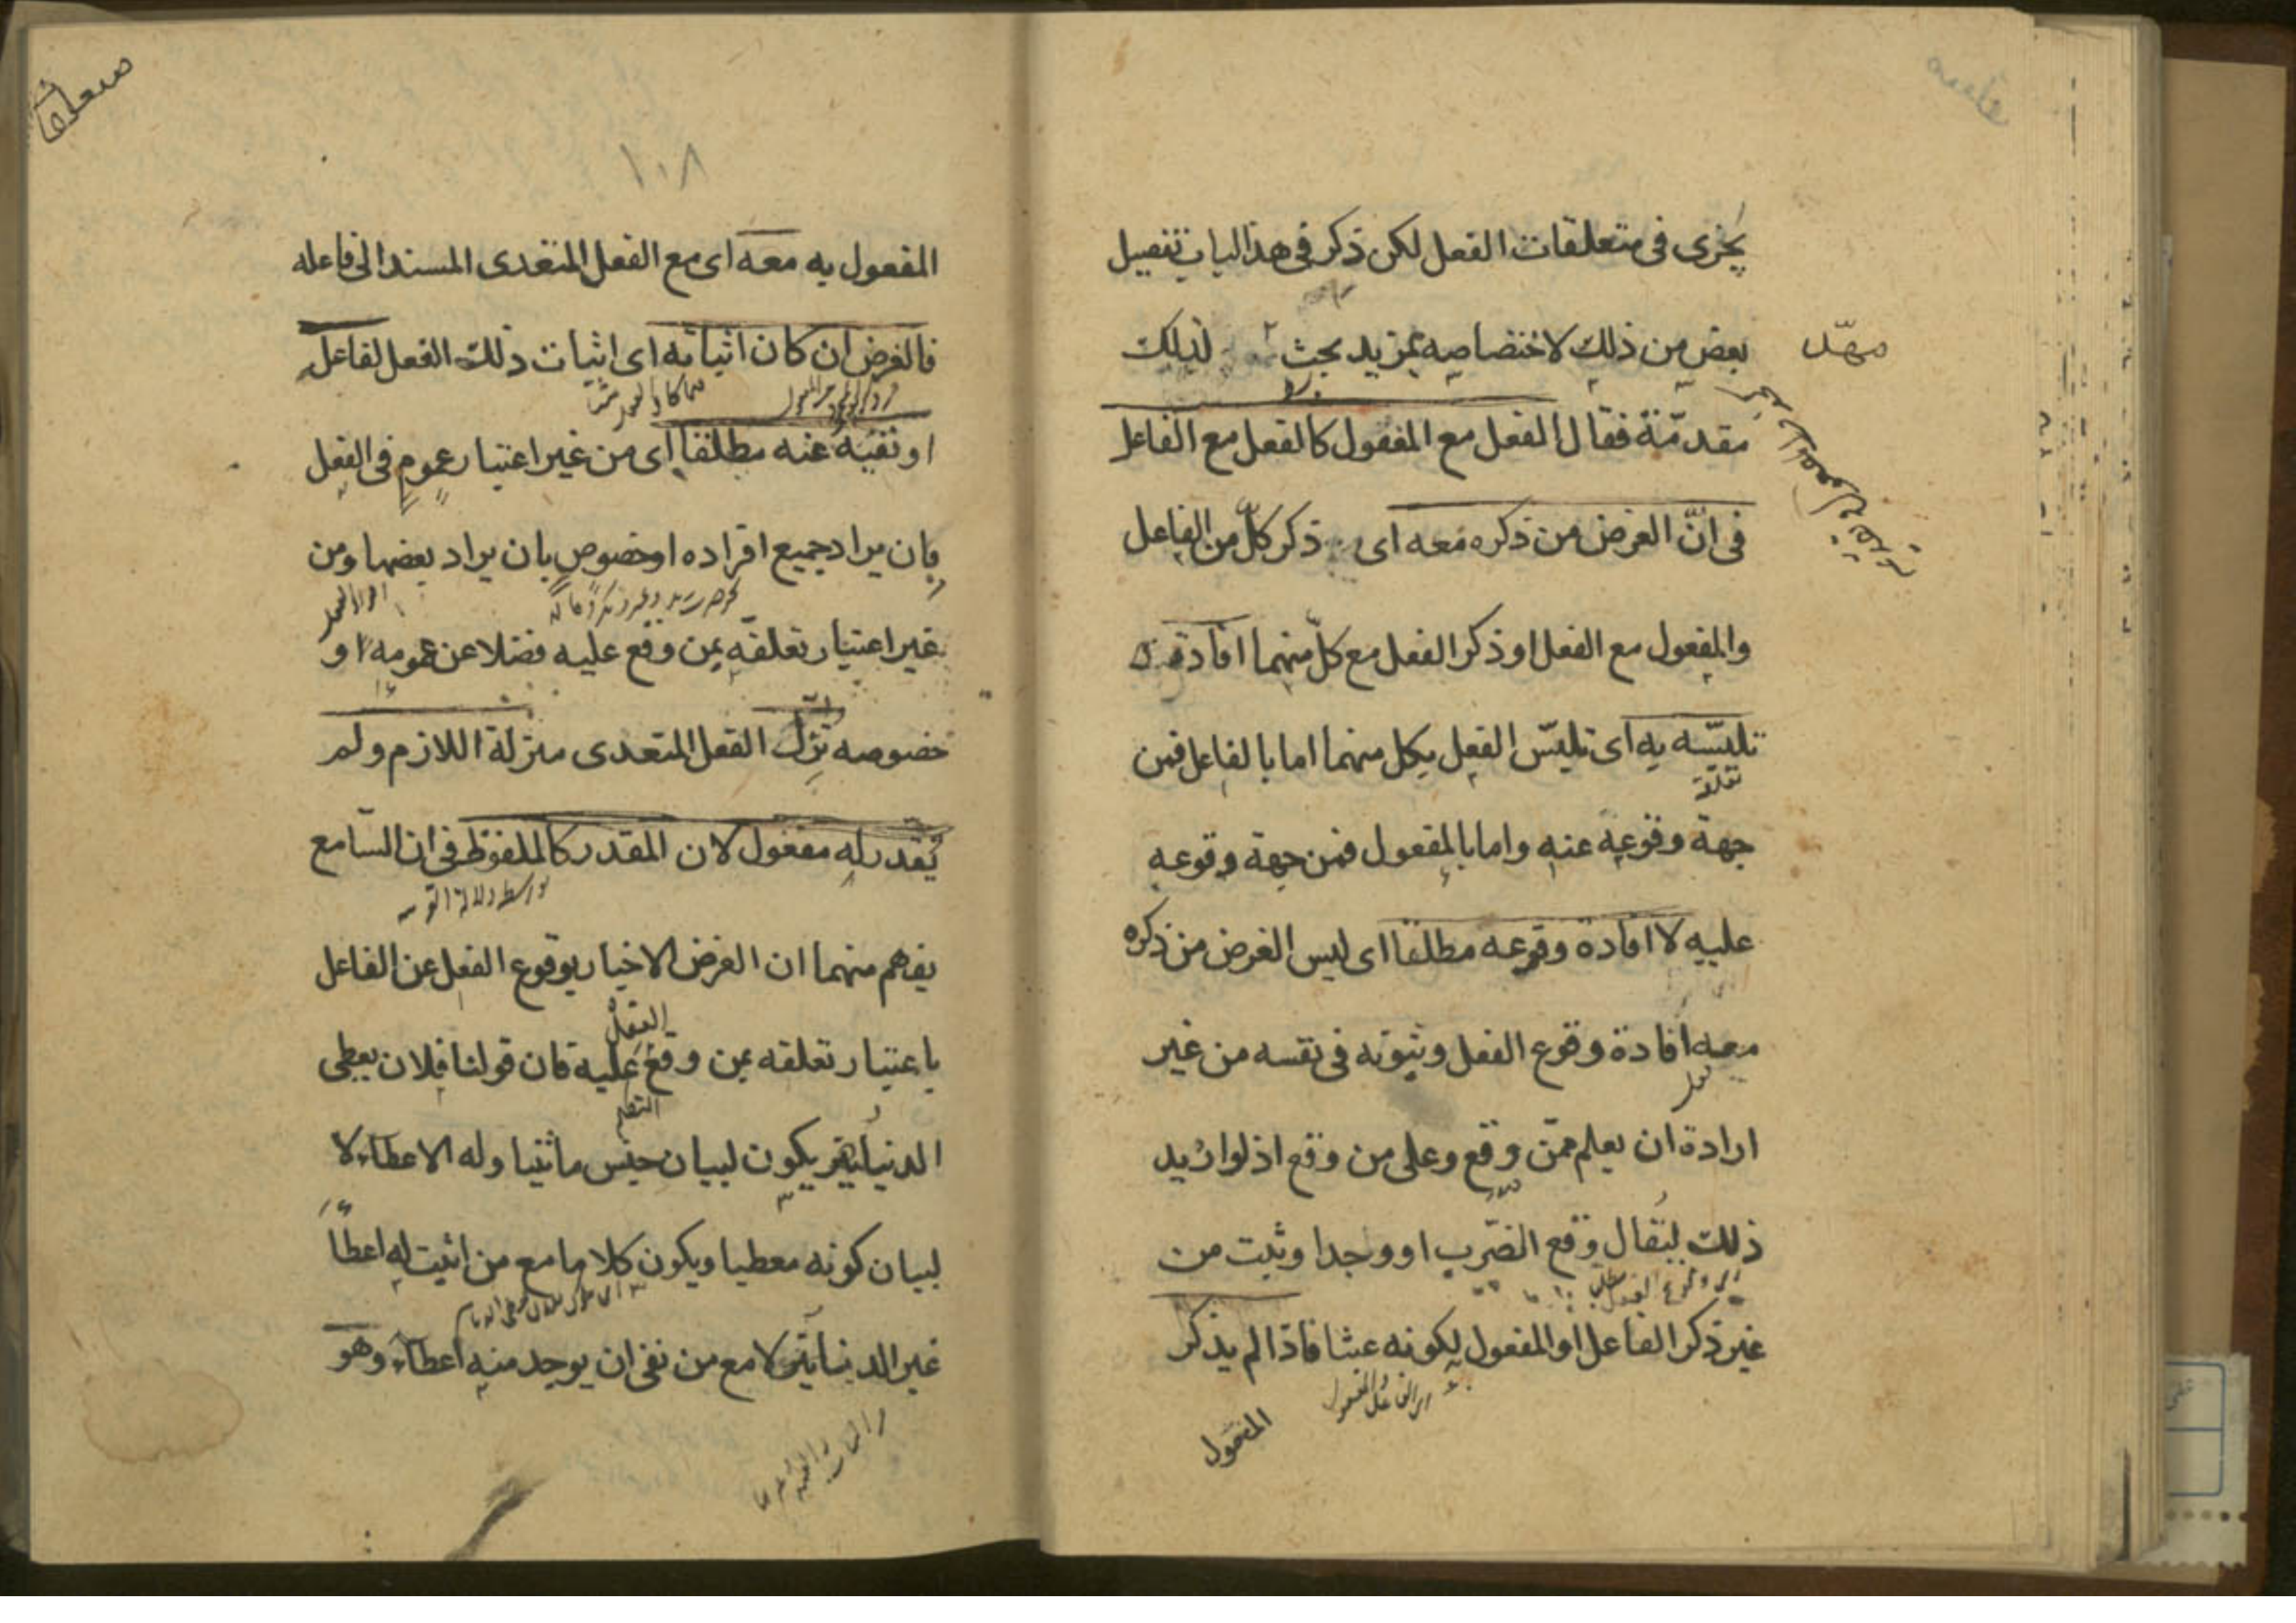 يجرى فى متعلقات الفعل لكن ذكر فى هذا الباب تفصيل
بعض من ذلك لاختصاصه بمزيد بحث لذلك
مهّد
مقدمّة فقال الفعل مع المفعول كالفعل مع الفاعل
فى انّ الغرض من ذكره معه اى ذكر كلّ من الفاعل
والمفعول مع الفعل او ذكر الفعل مع كلّ منهما افادة
تلبّسه به اى تلبّس الفعل بكل منهما اما بالفاعل فمن
جهة وقوعه عنه واما بالمفعول فمن جهة وقوعه
عليه لا افادة وقوعه مطلقا اى ليس الغرض من ذكره
معه افادة وقوع الفعل وثبوته فى نفسه من غير
ارادة ان يعلم ممّن وقع وعلى من وقع اذ لو اريد
ذلك ليقال وقع الضّرب او وجد او ثبت من
غير ذكر الفاعل او المفعول لكونه عبثا فاذا لم يذكر
المفعول
١٠٨
المفعول به معه اى مع الفعل المتعدى المسند الى فاعله
فالغرض ان كان اثباته اى اثبات ذلك الفعل لفاعله
او نفيه عنه مطلقا اى من غير اعتبار عموم فى الفعل
بان يراد جميع افراده او خصوص بان يراد بعضها ومن
غير اعتبار تعلقه بمن وقع عليه فضلا عن عمومه او
خصوصه نزّل الفعل المتعدى منزلة اللازم ولم
يقدر له مفعول لان المقدر كالملفوظ فى ان السّامع
يفهم منهما ان الغرض الاخبار بوقوع الفعل عن الفاعل
باعتبار تعلقه بمن وقع عليه فان قولنا فلان يعطى
الدنيانير يكون لبيان جنس ما يتناوله الاعطاء لا
لبيان كونه معطيا ويكون كلاما مع من اثبت له اعطاءً
غير الدنيانير لا مع من نفى ان يوجد منه اعطاء وهو